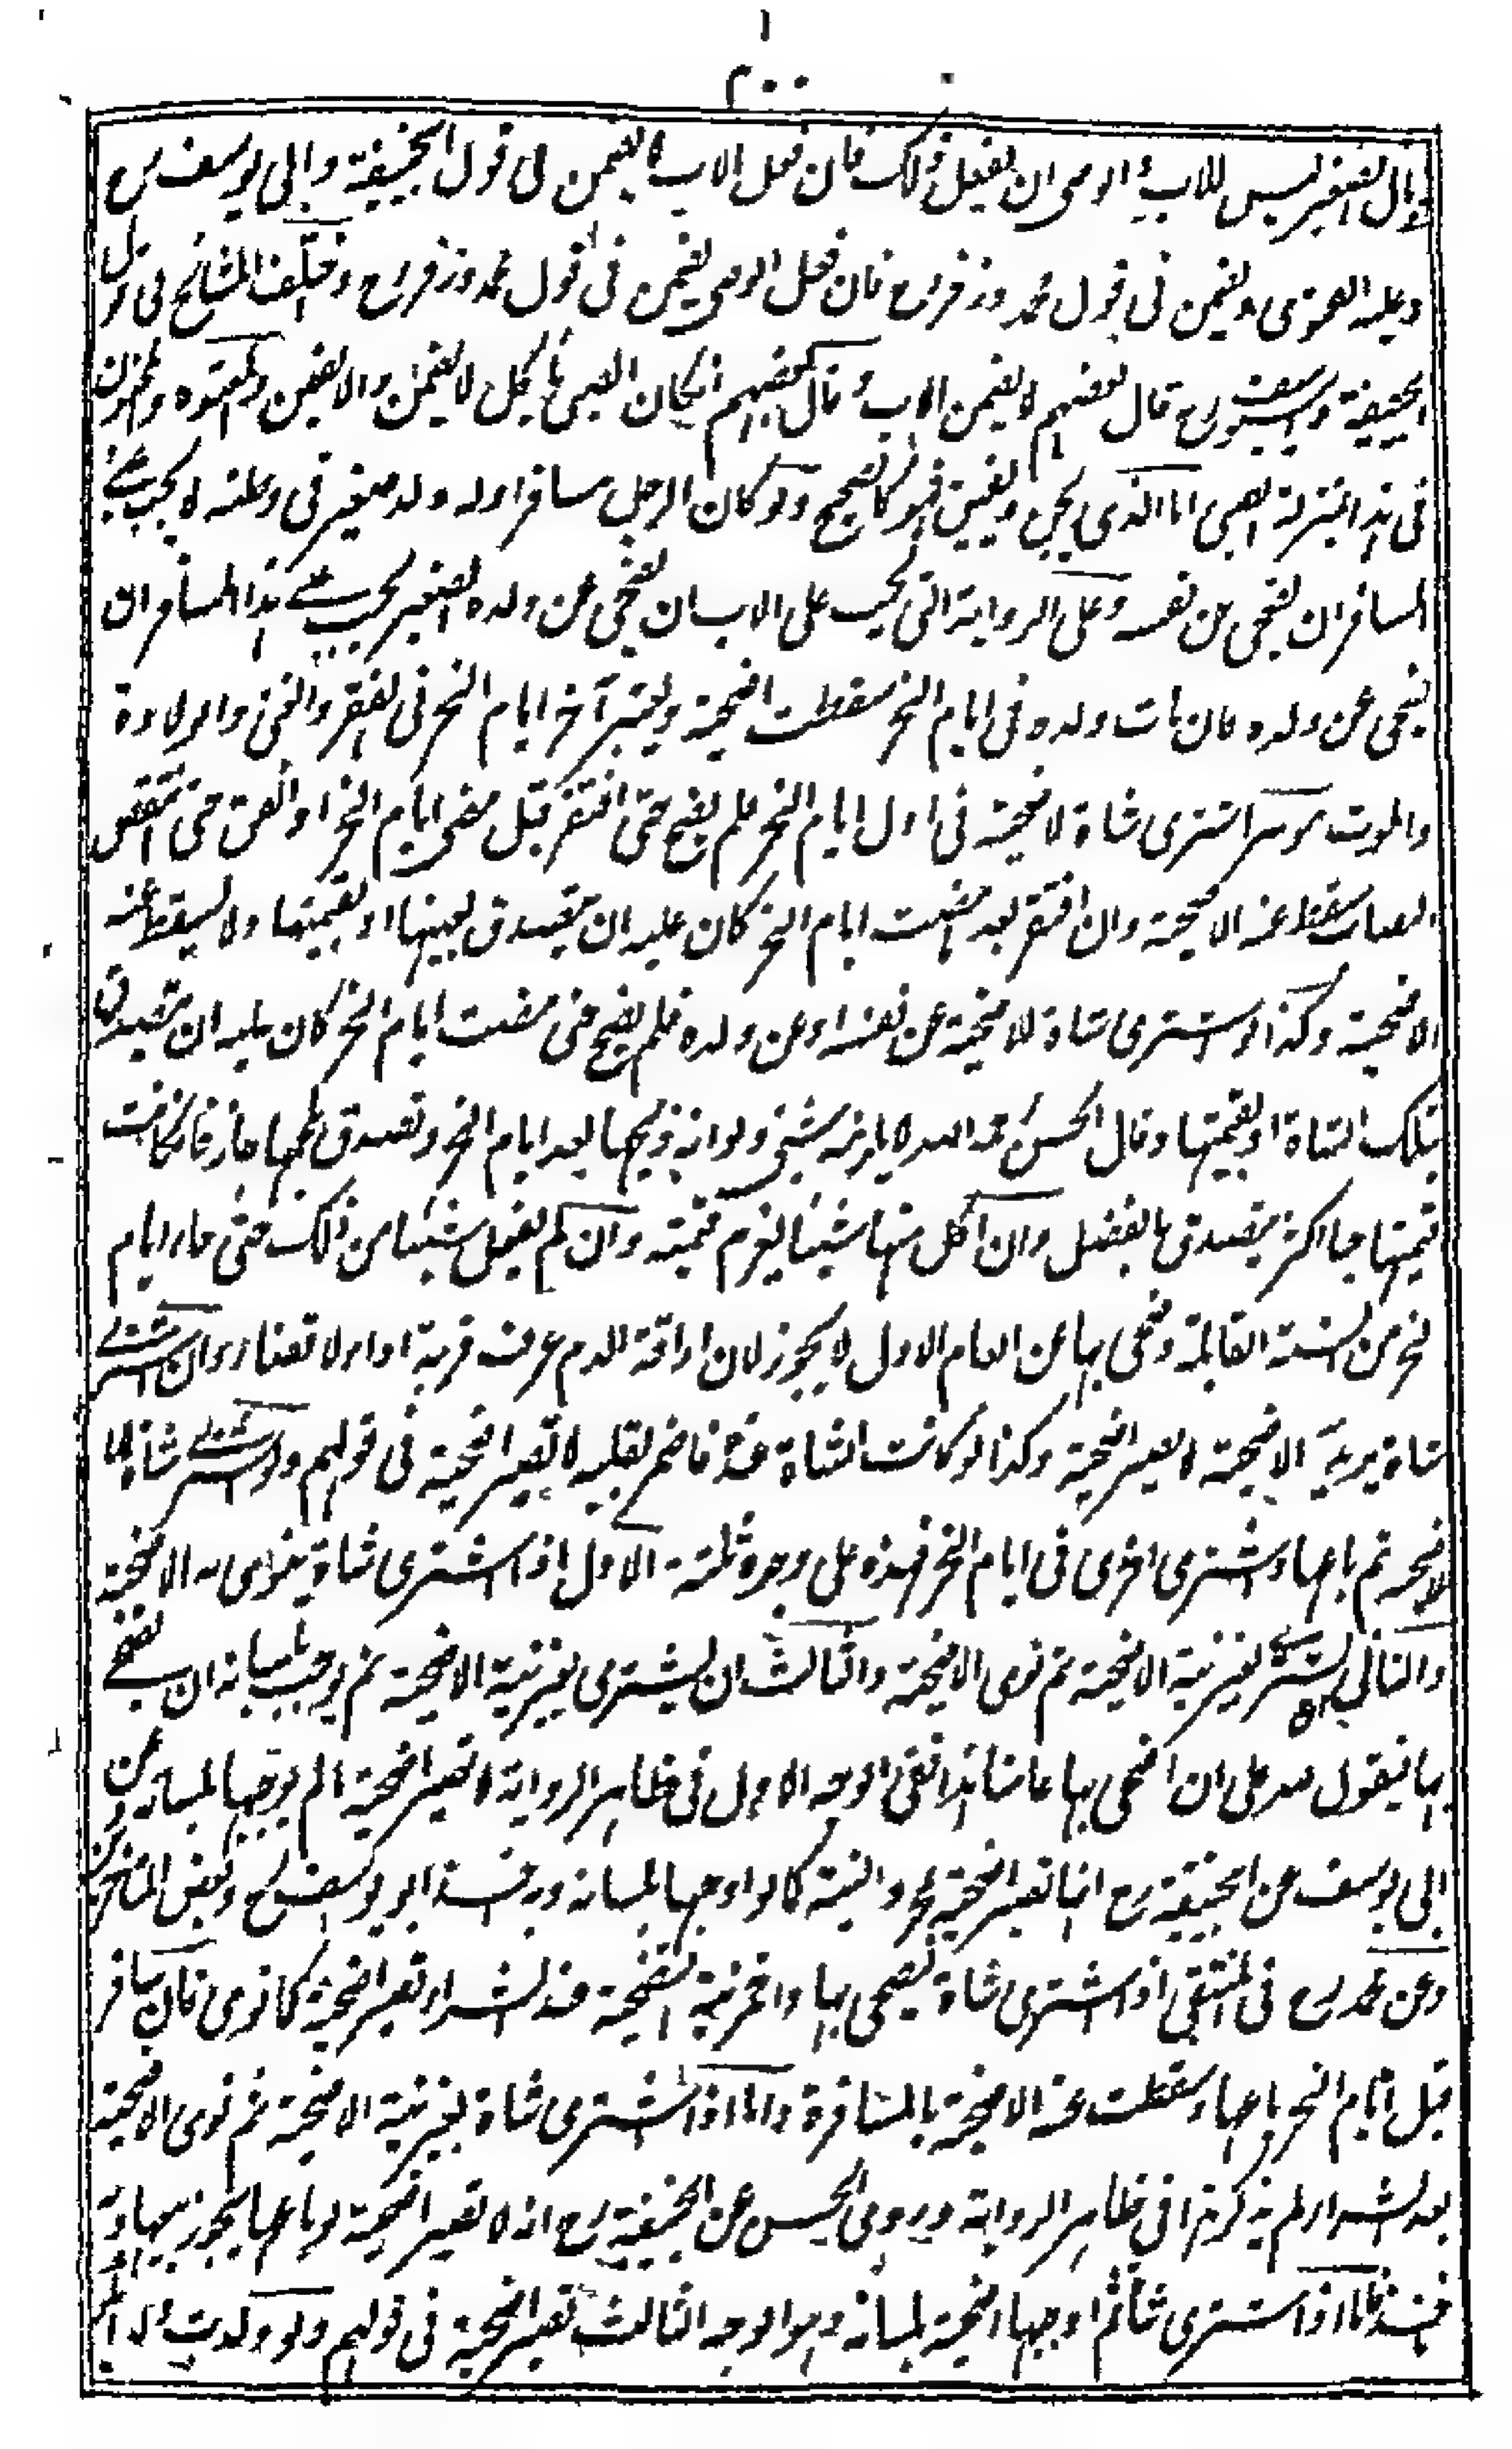 ٢٠٠
مال الصغير ليس للاب والوصى ان يفعل ذلك فان فعل الاب لا يضمن فى قول ابيحنيفة وابى يوسف رح
وعليه الفتوى ويضمن فى قول محمد وزفر رح فان فعل الوصى يضمن فى قول محمد وزفر رح واختلف المشائخ فى قول
ابيحنيفة وابى يوسف رح قال بعضهم لا يضمن الاب وقال بعضهم انكان الصبى ياكل لا يضمن والا يضمن والمعتوه والمجنون
فى هذا بمنزلة الصبى اما الذى يجن ويفيق فهو كالصحيح ولو كان الرجل مسافرا وله ولد صغير فى وطنه لا يجب على
المسافر ان يضحى عن نفسه وعلى الرواية التى تجب على الاب ان يضحى عن ولده الصغير يجب على هذا المسافر ان
يضحى عن ولده فان مات ولده فى ايام النحر سقطت اضحية ويعتبر آخر ايام النحر فى الفقر والغنى والولادة
والموت موسر اشترى شاة لاضحية فى اول ايام النحر فلم يضح حتى افتقر قبل مضى ايام النحر او انفق حتى انتقص
النصاب سقط عنه الاضحية وان افتقر بعد مضت ايام النحر كان عليه ان يتصدق بعينها او بقيمتها ولا يسقط عنه
الاضحية وكذا لو اشترى شاة لاضحية عن نفسه او عن ولده فلم يضح حتى مضت ايام النحر كان عليه ان يتصدق
بتلك الشاة او بقيمتها وقال الحسن رحمه الله لا يلزمه شئى ولو انه ذبحها بعد ايام النحر وتصدق بلحمها جاز فان كانت
قيمتها حيا اكثر يتصدق بالفضل وان اكل منها شيئا يغرم قيمته وان لم يفعل شيئا من ذلك حتى جاء ايام
النحر من السنة القابلة وضحى بها عن العام الاول لا يجوز لان اراقة الدم عرف قربة اداء لا قضاء وان اشترى
شاة يريد الاضحية لا تصير اضحية وكذا لو كانت الشاة عنده فاضمر بقلبه لا تصير اضحية فى قولهم ولو اشترى شاة
لاضحية ثم باعها واشترى اخرى فى ايام النحر فهذه على وجوه ثلثة الاول اذا اشترى شاة ينوى به الاضحية
والثانى ان يشترى بغير نية الاضحية ثم نوى الاضحية والثالث ان يشترى بغير نية الاضحية ثم يوجب بلسانه ان يضحى
بها فيقول لله على ان اضحى بها عامنا هذا ففى الوجه الاول فى ظاهر الرواية لا تصير اضحية ما لم يوجبها بلسانه وعن
ابى يوسف عن ابيحنيفة رح انها تصير اضحية بمجرد النية كما لو اوجبها بلسانه وبه اخذ ابو يوسف رح وبعض المتأخرين
وعن محمد رح فى المنتقى اذا اشترى شاة ليضحى بها واضمر نية التضحية عند الشراء تصير اضحية كما نوى فان سافر
قبل ايام النحر باعها وسقطت عنه الاضحية بالمسافرة واما اذا اشترى شاة بغير نية الاضحية ثم نوى الاضحية
بعد الشراء لم يذكر هذا فى ظاهر الرواية وروى الحسن عن ابيحنيفة رح انه لا تصير اضحية لو باعها يجوز بيعها وبه
ناخذ فاما اذا اشترى شاة ثم اوجبها اضحية بلسانه وهو الوجه الثالث تصير اضحية فى قولهم ولو ولدت